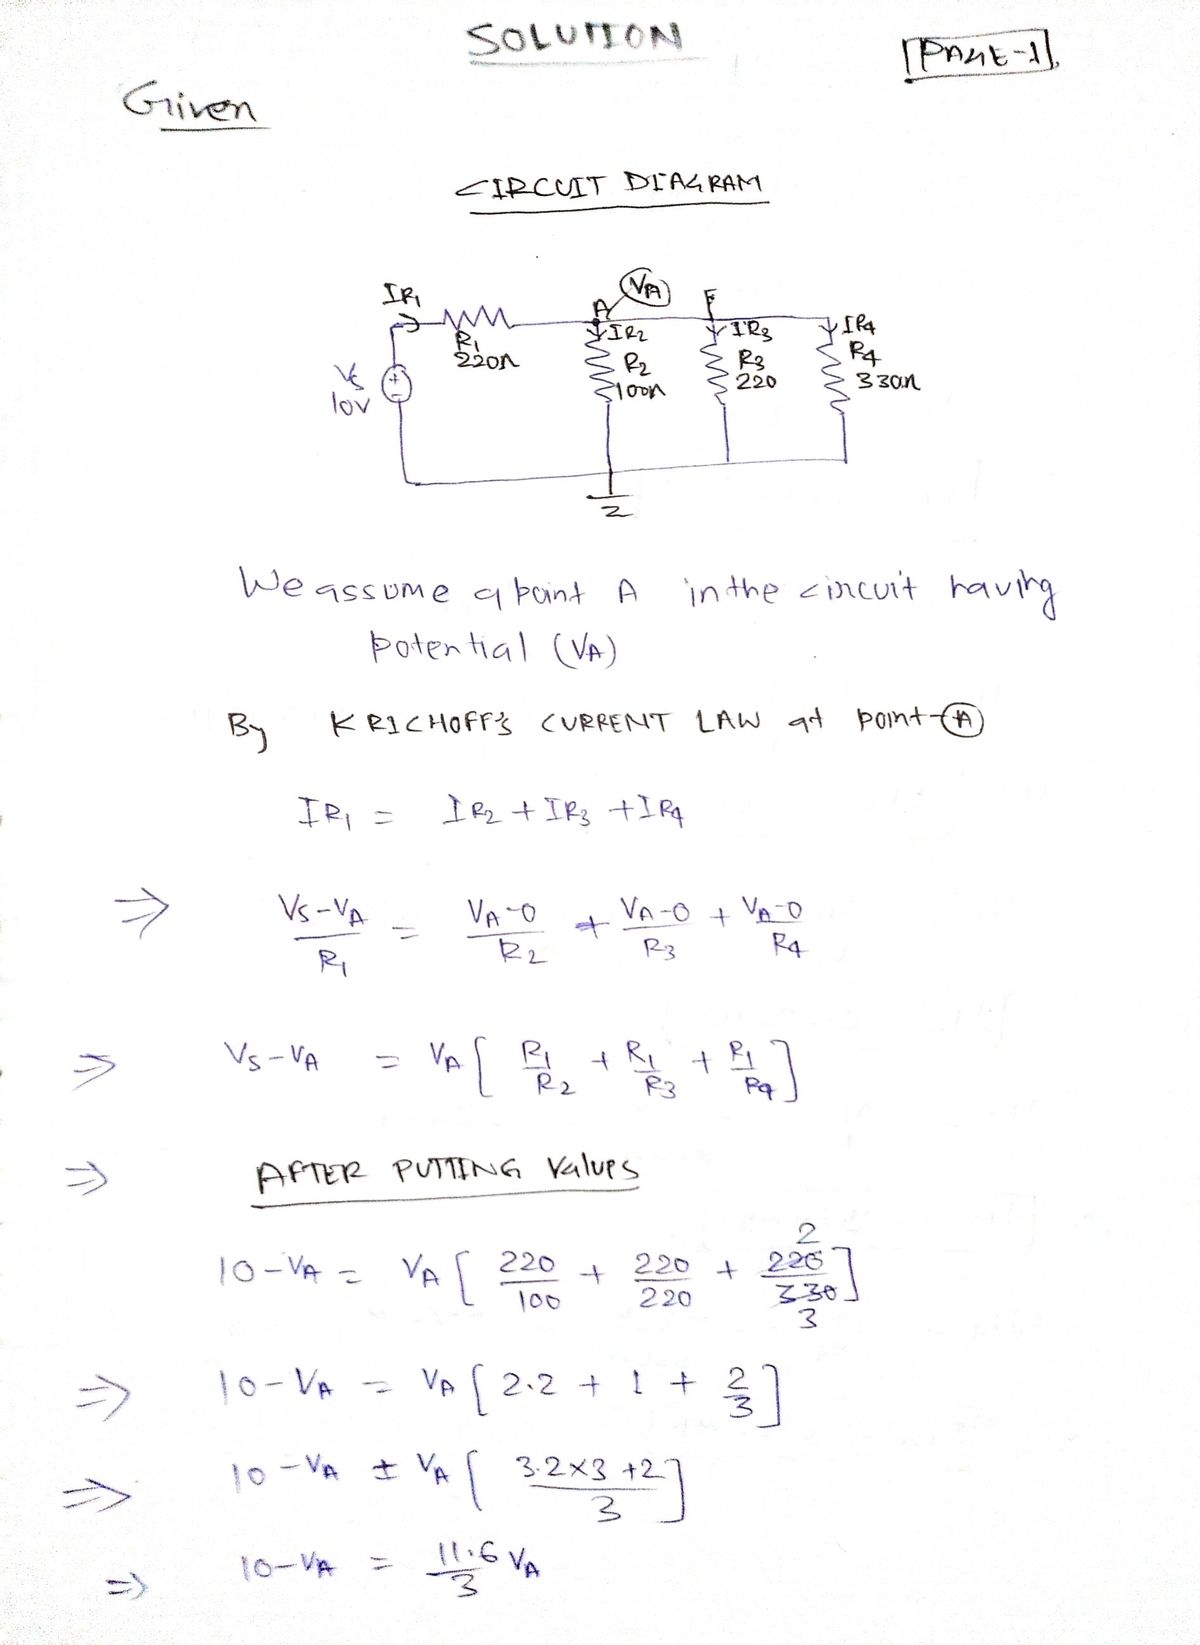 SOLUTION
[PAGE-1]
Given
CIRCUIT DIAGRAM
IR₁
R₁
220Ω
Vs
10V
+
-
A
VA
IR₂
R₂
100Ω
F
IR₃
R₃
220
IR₄
R₄
330Ω
We assume a point A in the circuit having
potential (VA)
By KRICHOFF'S CURRENT LAW at point-(A)
IR₁ = IR₂ + IR₃ + IR₄
⇒ (Vs-VA)/R₁ = (VA-0)/R₂ + (VA-0)/R₃ + (VA-0)/R₄
⇒ Vs-VA = VA [ R₁/R₂ + R₁/R₃ + R₁/R₄ ]
⇒ AFTER PUTTING Values
10-VA = VA [ 220/100 + 220/220 + 220/330 ] 2 3
⇒ 10-VA = VA [ 2.2 + 1 + 2/3 ]
⇒ 10-VA = VA [ (3.2×3+2)/3 ]
⇒ 10-VA = 11.6/3 VA